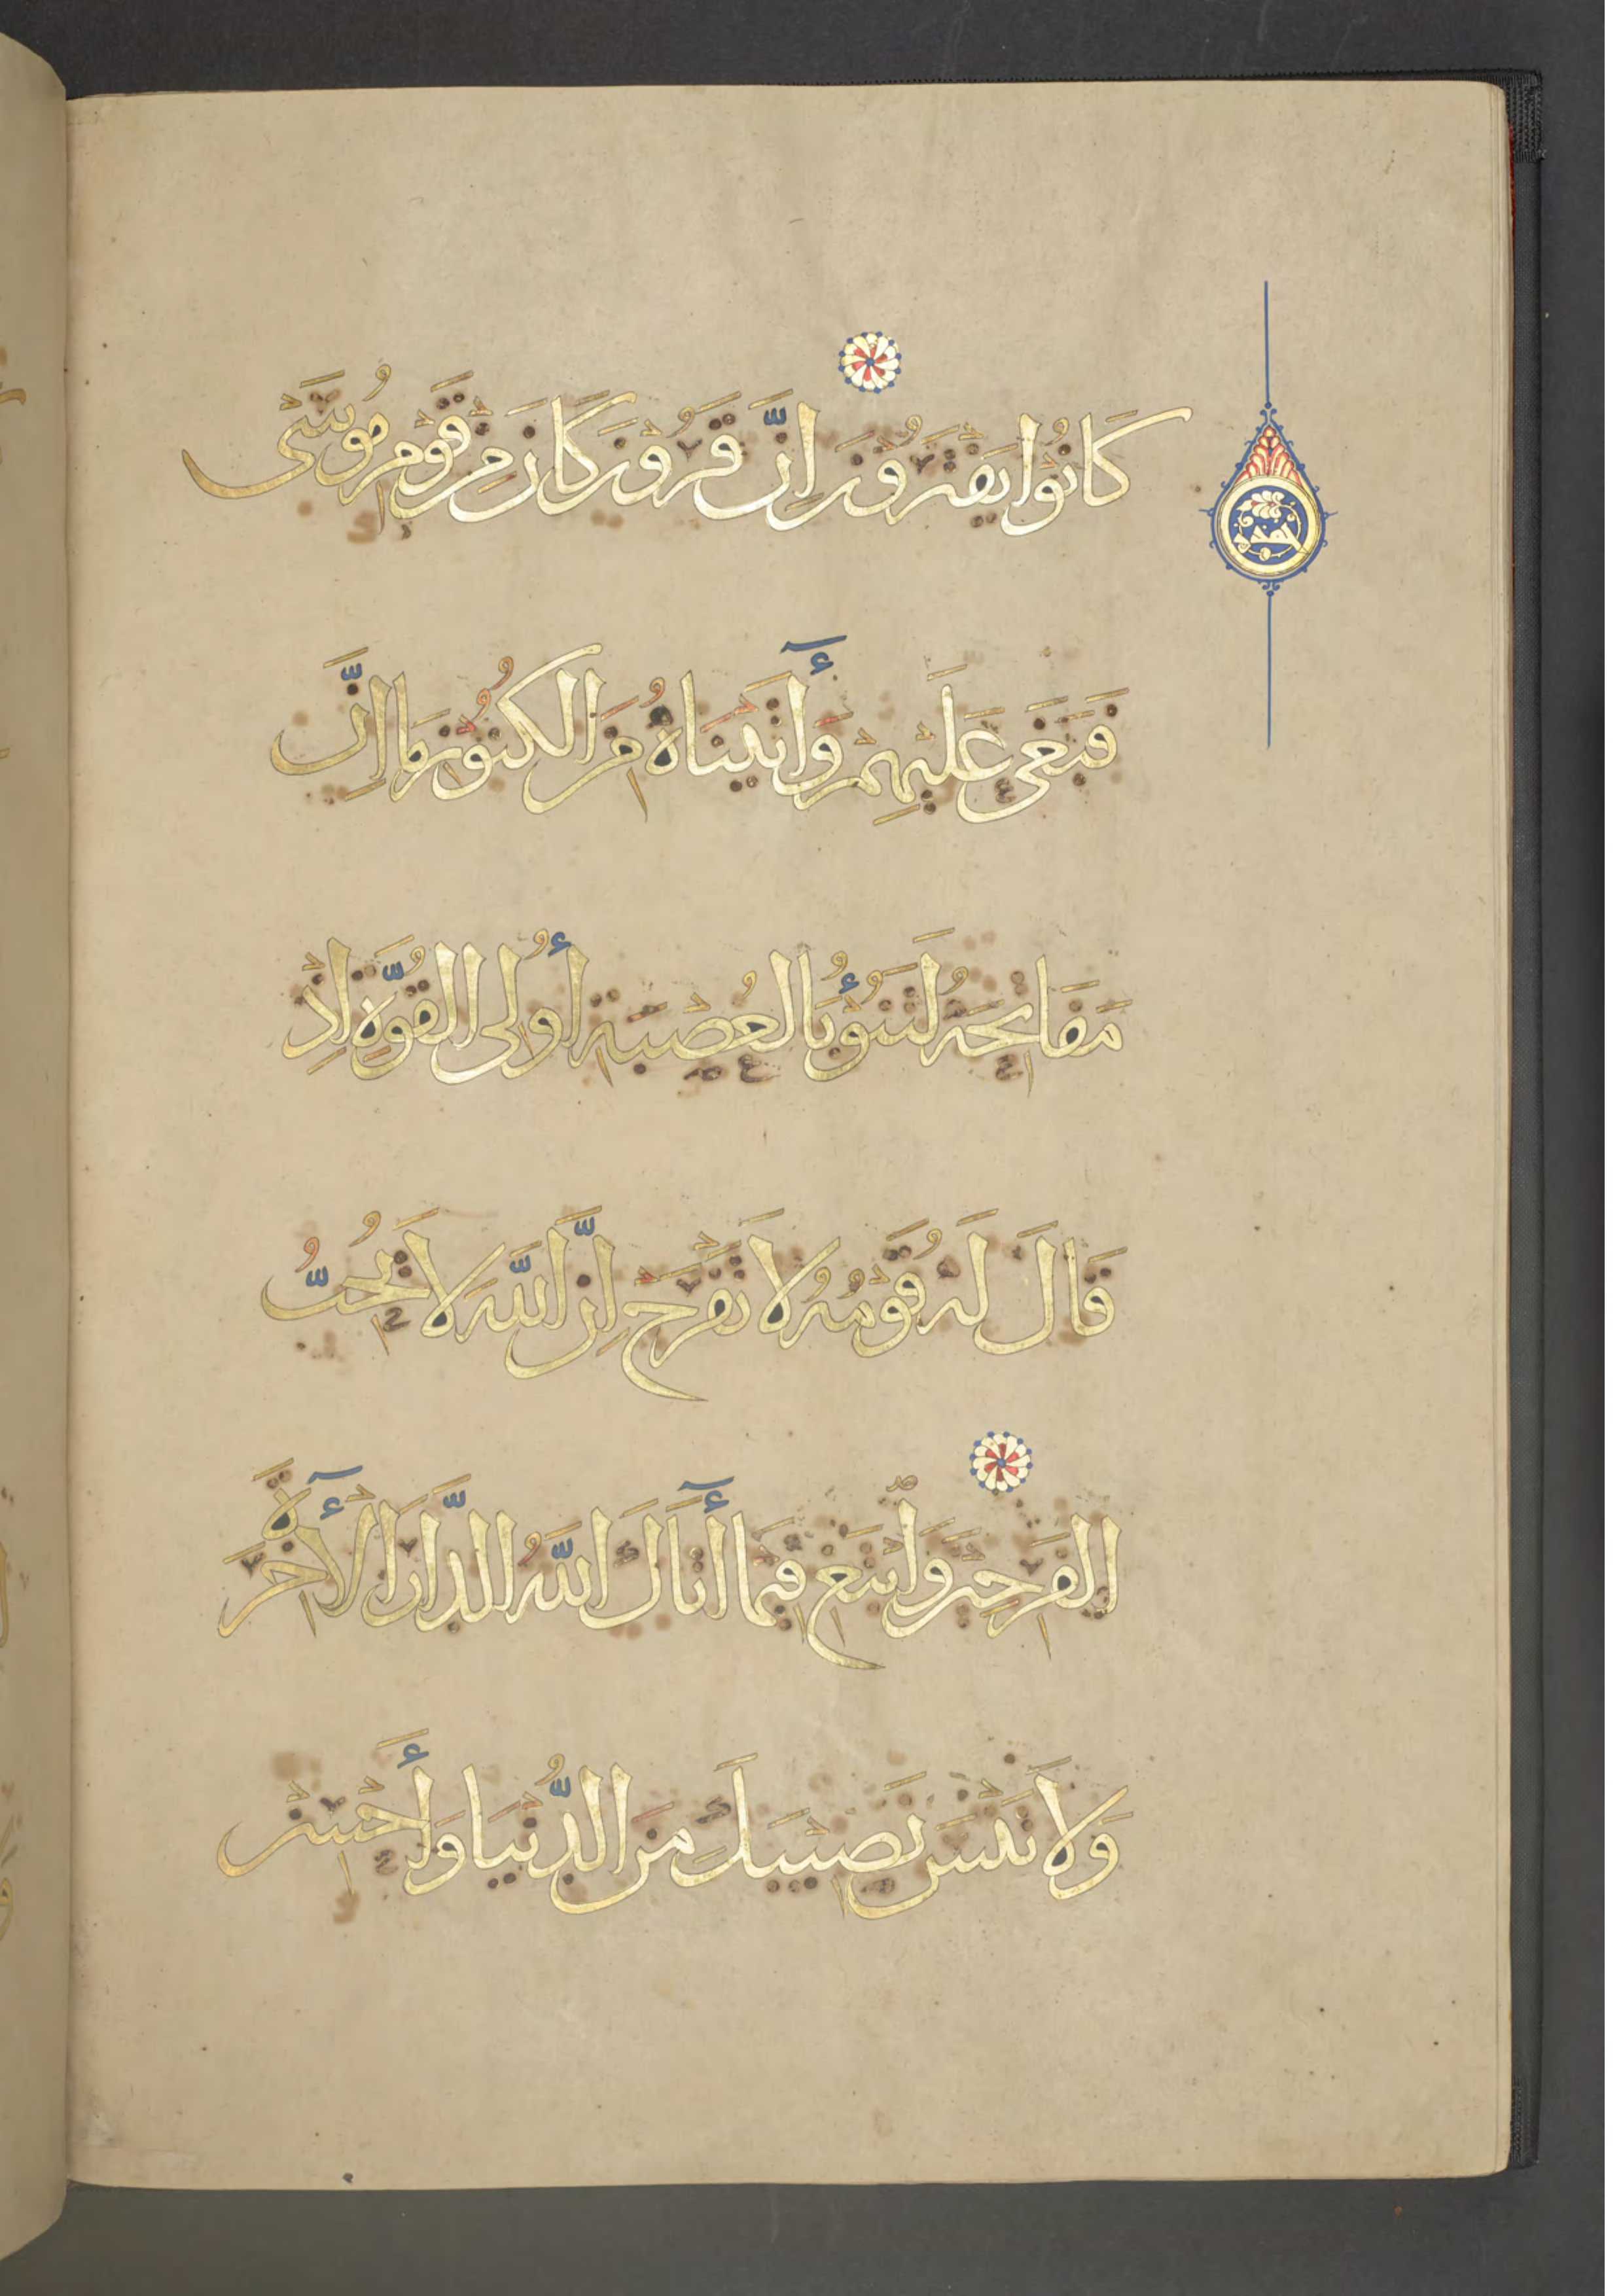 كَانُوا يَفْتَرُونَ إِنَّ قَرُونَ كَانَ مِنْ قَوْمِ مُوسَى
فَبَغَى عَلَيْهِمْ وَأٓتَيْنَاهُ مِنَ الْكُنُوزِ مَا إِنَّ
مَفَاتِحَهُ لَتَنُوؤُ بِالْعُصْبَةِ أُولِى الْقُوَّةِ إِذْ
قَالَ لَهُ قَوْمُهُ لَا تَفْرَحْ إِنَّ اللَّهَ لَا يُحِبُّ
الْفَرِحِينَ وَابْتَغِ فِيمَا أٓتَاكَ اللَّهُ الدَّارَ الْأٓخِرَةَ
وَلَا تَنْسَ نَصِيبَكَ مِنَ الدُّنْيَا وَأَحْسِنْ